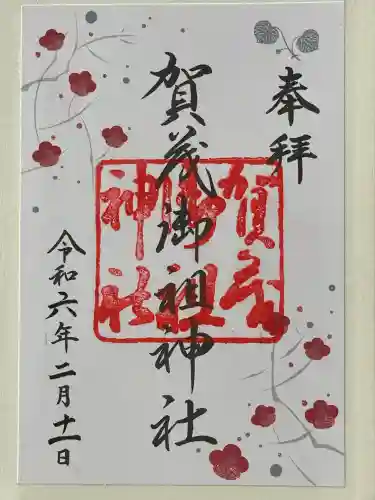 奉拝
賀茂御祖神社
賀茂
御祖
神社
令和六年二月十一日